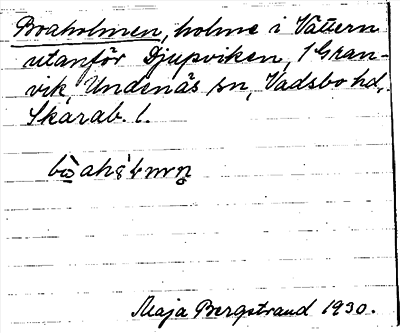 Boaholmen, holme i Vättern
utanför Djupviken, 1 Gran-
vik Undenäs sn, Vadsbo hd,
Skarab. l.
Maja Bergstrand 1930.